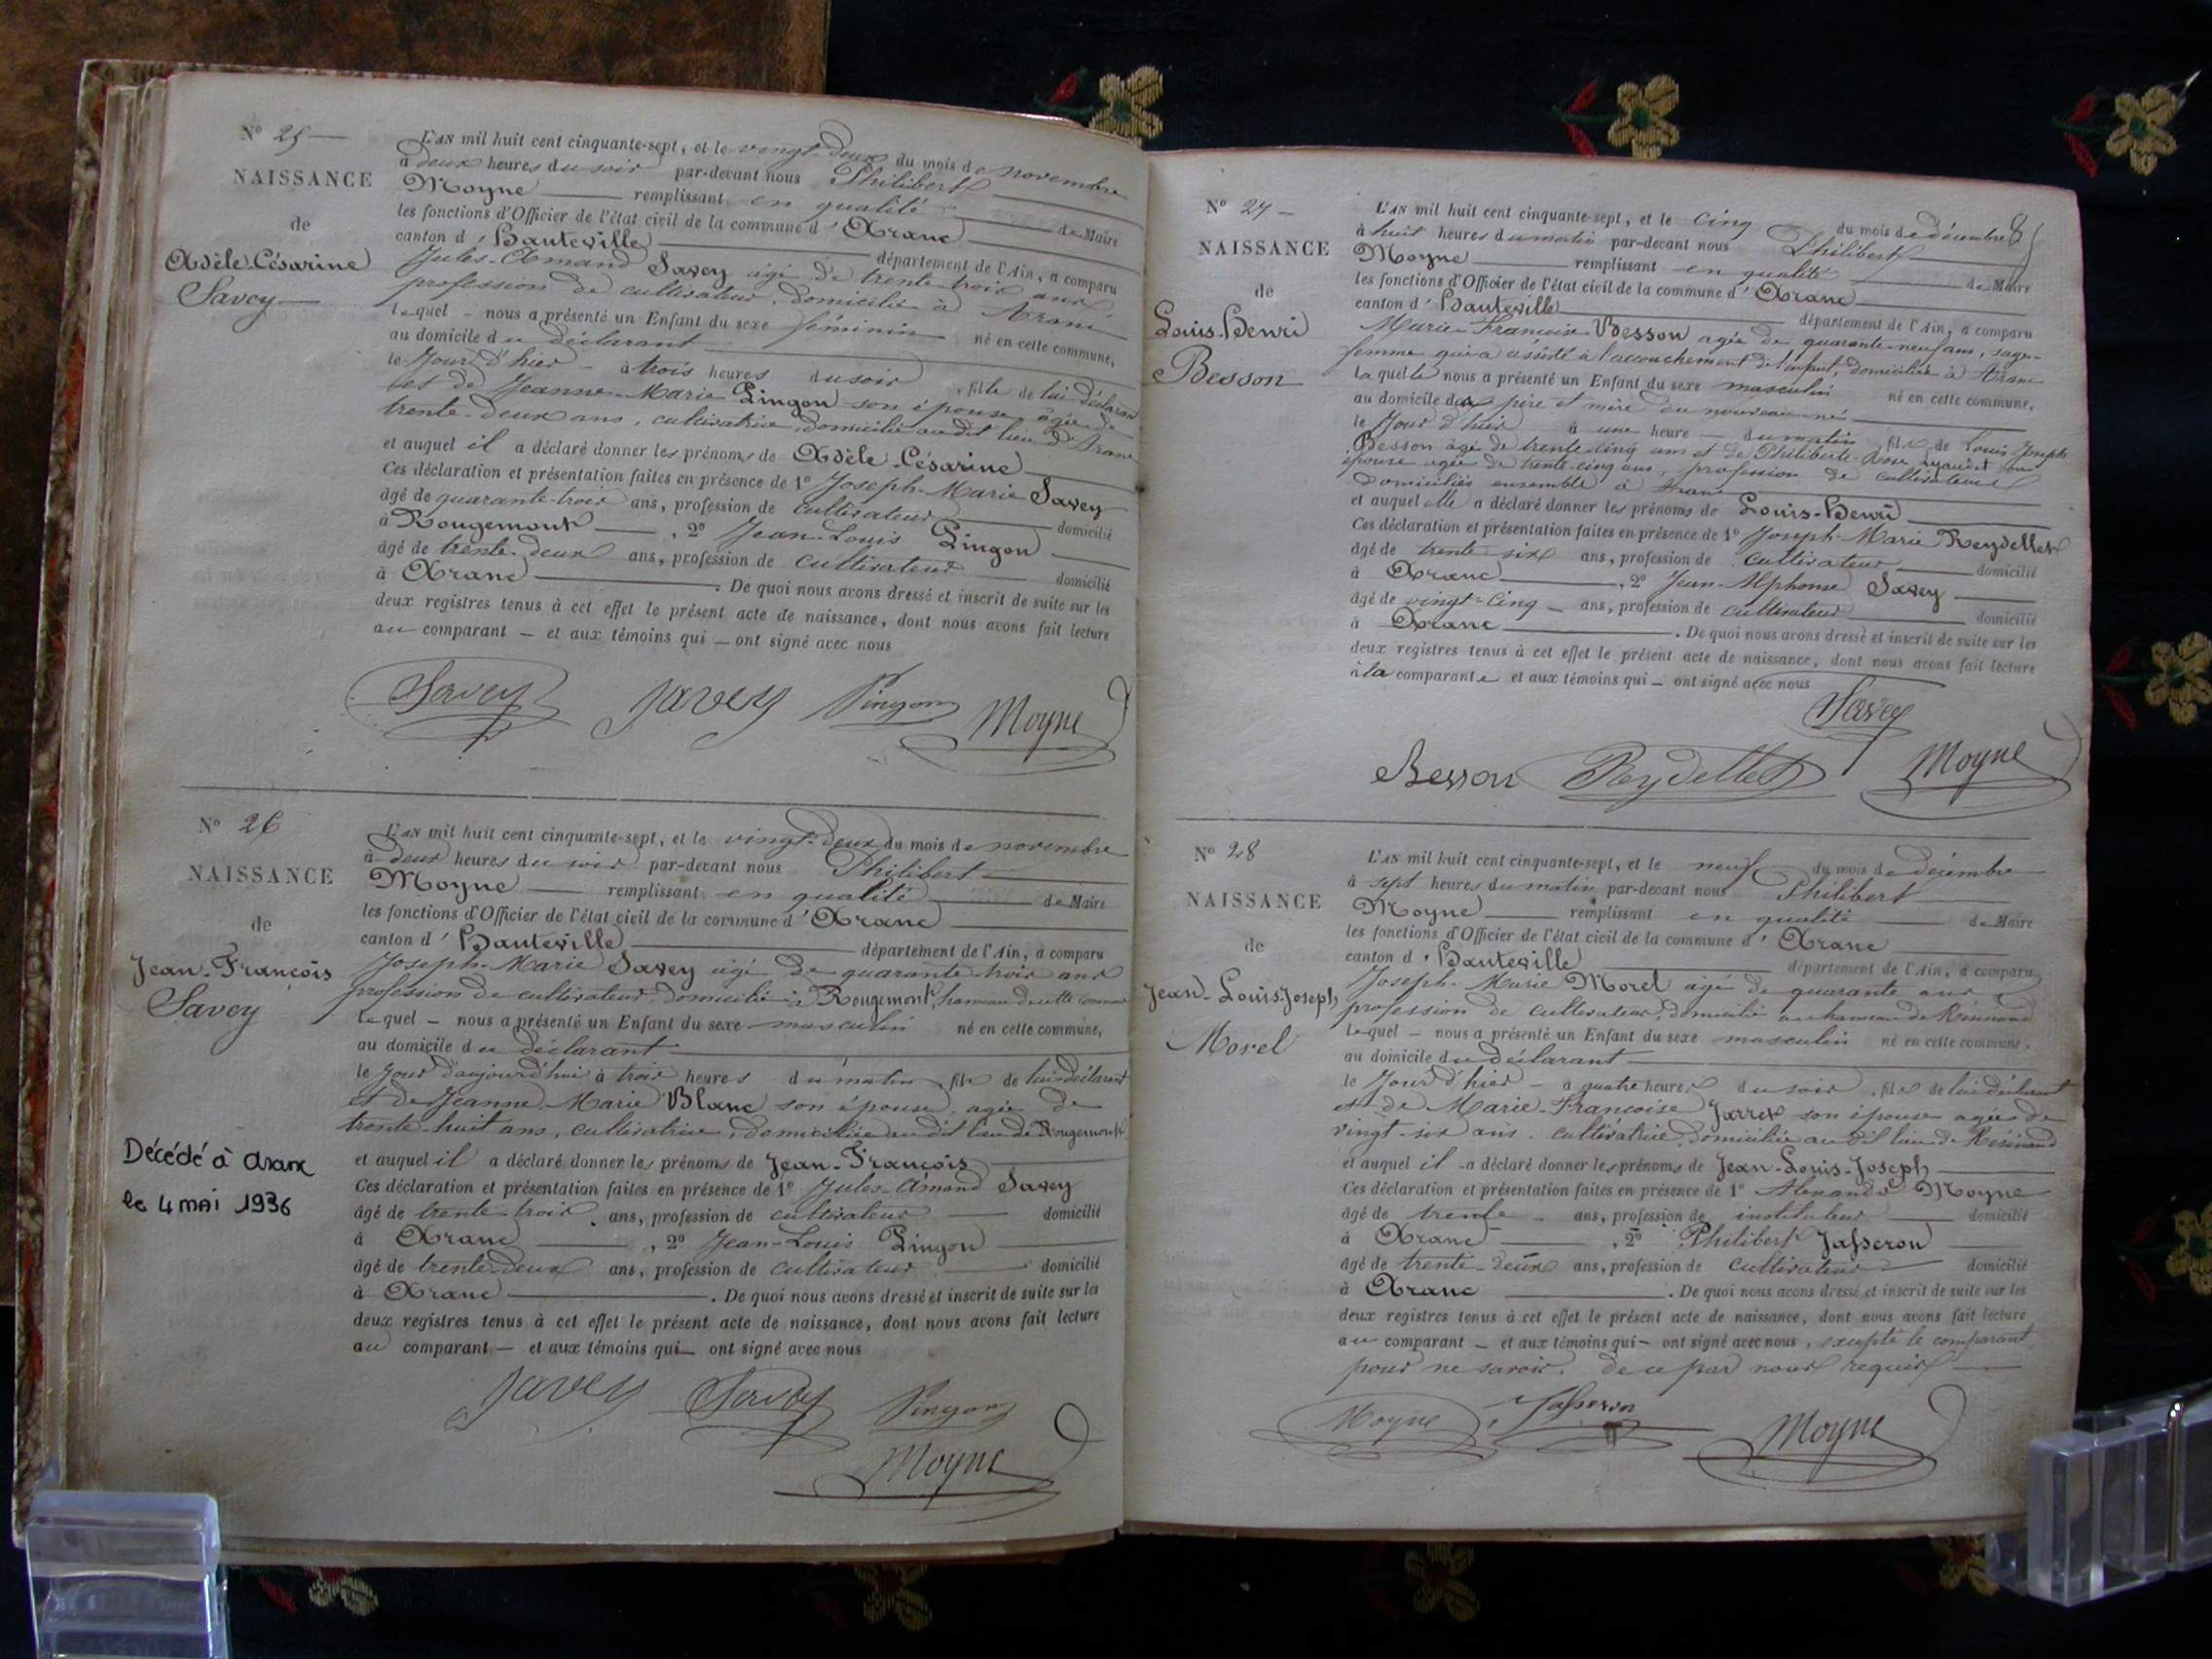 N° 25
NAISSANCE
de
Adèle-Césarine
Savey
L'AN mil huit cent cinquante-sept, et le vingt-deux du mois de novembre
à deux heures du soir par-devant nous Philibert
Moyne remplissant en qualité de Maire
les fonctions d'Officier de l'état civil de la commune d'Aranc
canton d'Hauteville département de l'Ain, a comparu
Jules-Amand Savey âgé de trente-trois ans
profession de cultivateur, domicilié à Aranc
lequel nous a présenté un Enfant du sexe féminin né en cette commune,
au domicile du déclarant
le Jour d'hier à trois heures du soir, fille de lui déclarant
et de Jeanne-Marie Pingon son épouse, agée de
trente-deux ans, cultivatrice, domiciliée audit lieu d'Aranc
et auquel il a déclaré donner les prénoms de Adèle-Césarine
Ces déclaration et présentation faites en présence de 1° Joseph-Marie Savey
âgé de quarante-trois ans, profession de cultivateur domicilié
à Rougemont, 2° Jean-Louis Pingon
âgé de trente-deux ans, profession de cultivateur domicilié
à Aranc. De quoi nous avons dressé et inscrit de suite sur les
deux registres tenus à cet effet le présent acte de naissance, dont nous avons fait lecture
au comparant et aux témoins qui ont signé avec nous
Savey Savey Pingon Moyne
N° 26
NAISSANCE
de
Jean-François
Savey
Décédé à Aranc
le 4 mai 1936
L'AN mil huit cent cinquante-sept, et le vingt-deux du mois de novembre
à deux heures du soir par-devant nous Philibert
Moyne remplissant en qualité de Maire
les fonctions d'Officier de l'état civil de la commune d'Aranc
canton d'Hauteville département de l'Ain, a comparu
Joseph-Marie Savey âgé de quarante trois ans
profession de cultivateur domicilié à Rougemont, hameau de cette commune
lequel nous a présenté un Enfant du sexe masculin né en cette commune,
au domicile du déclarant
le Jour d'aujourd'hui à trois heures du matin, fils de lui déclarant
et de Jeanne-Marie Blanc son épouse, agée de
trente-huit ans, cultivatrice, domiciliée audit lieu de Rougemont
et auquel il a déclaré donner les prénoms de Jean-François
Ces déclaration et présentation faites en présence de 1° Jules-Amand Savey
âgé de trente-trois ans, profession de cultivateur domicilié
à Aranc, 2° Jean-Louis Pingon
âgé de trente-deux ans, profession de cultivateur domicilié
à Aranc. De quoi nous avons dressé et inscrit de suite sur les
deux registres tenus à cet effet le présent acte de naissance, dont nous avons fait lecture
au comparant et aux témoins qui ont signé avec nous
Savey Savey Pingon
Moyne
N° 27
NAISSANCE
de
Louis-Henri
Besson
L'AN mil huit cent cinquante-sept, et le cinq du mois de décembre
à huit heures du matin par-devant nous Philibert
Moyne remplissant en qualité de Maire
les fonctions d'Officier de l'état civil de la commune d'Aranc
canton d'Hauteville département de l'Ain, a comparu
Marie-Françoise Besson agée de quarante-neuf ans, sage-
femme qui a assisté à l'accouchement de l'enfant, domiciliée à Aranc
laquelle nous a présenté un Enfant du sexe masculin né en cette commune,
au domicile des père et mère du nouveau-né
le Jour d'hier à une heure du matin, fils de Louis-Joseph
Besson âgé de trente-cinq ans et de Philiberte-Rose son
épouse agée de trente-cinq ans, profession de cultivateurs
domiciliés ensemble à Aranc
et auquel elle a déclaré donner les prénoms de Louis-Henri
Ces déclaration et présentation faites en présence de 1° Joseph-Marie Reydellet
âgé de trente six ans, profession de cultivateur domicilié
à Aranc, 2° Jean-Alphonse Savey
âgé de vingt-cinq ans, profession de cultivateur domicilié
à Aranc. De quoi nous avons dressé et inscrit de suite sur les
deux registres tenus à cet effet le présent acte de naissance, dont nous avons fait lecture
à la comparante et aux témoins qui ont signé avec nous
Savey
Besson Reydellet Moyne
N° 28
NAISSANCE
de
Jean-Louis-Joseph
Morel
L'AN mil huit cent cinquante-sept, et le neuf du mois de décembre
à sept heures du matin par-devant nous Philibert
Moyne remplissant en qualité de Maire
les fonctions d'Officier de l'état civil de la commune d'Aranc
canton d'Hauteville département de l'Ain, a comparu
Joseph-Marie Morel âgé de quarante ans
profession de cultivateur, domicilié au hameau de Résinand
lequel nous a présenté un Enfant du sexe masculin né en cette commune.
au domicile du déclarant
le Jour d'hier à quatre heures du soir, fils de lui déclarant
et de Marie-Françoise Jarret son épouse agée de
vingt-six ans, cultivatrice, domiciliée audit lieu de Résinand
et auquel il a déclaré donner les prénoms de Jean-Louis-Joseph
Ces déclaration et présentation faites en présence de 1° Alexandre Moyne
âgé de trente ans, profession de instituteur domicilié
à Aranc, 2° Philibert Jasseron
âgé de trente-deux ans, profession de cultivateur domicilié
à Aranc. De quoi nous avons dressé et inscrit de suite sur les
deux registres tenus à cet effet le présent acte de naissance, dont nous avons fait lecture
au comparant et aux témoins qui ont signé avec nous, excepté le comparant,
pour ne savoir, de ce par nous requis
Moyne Jasseron Moyne